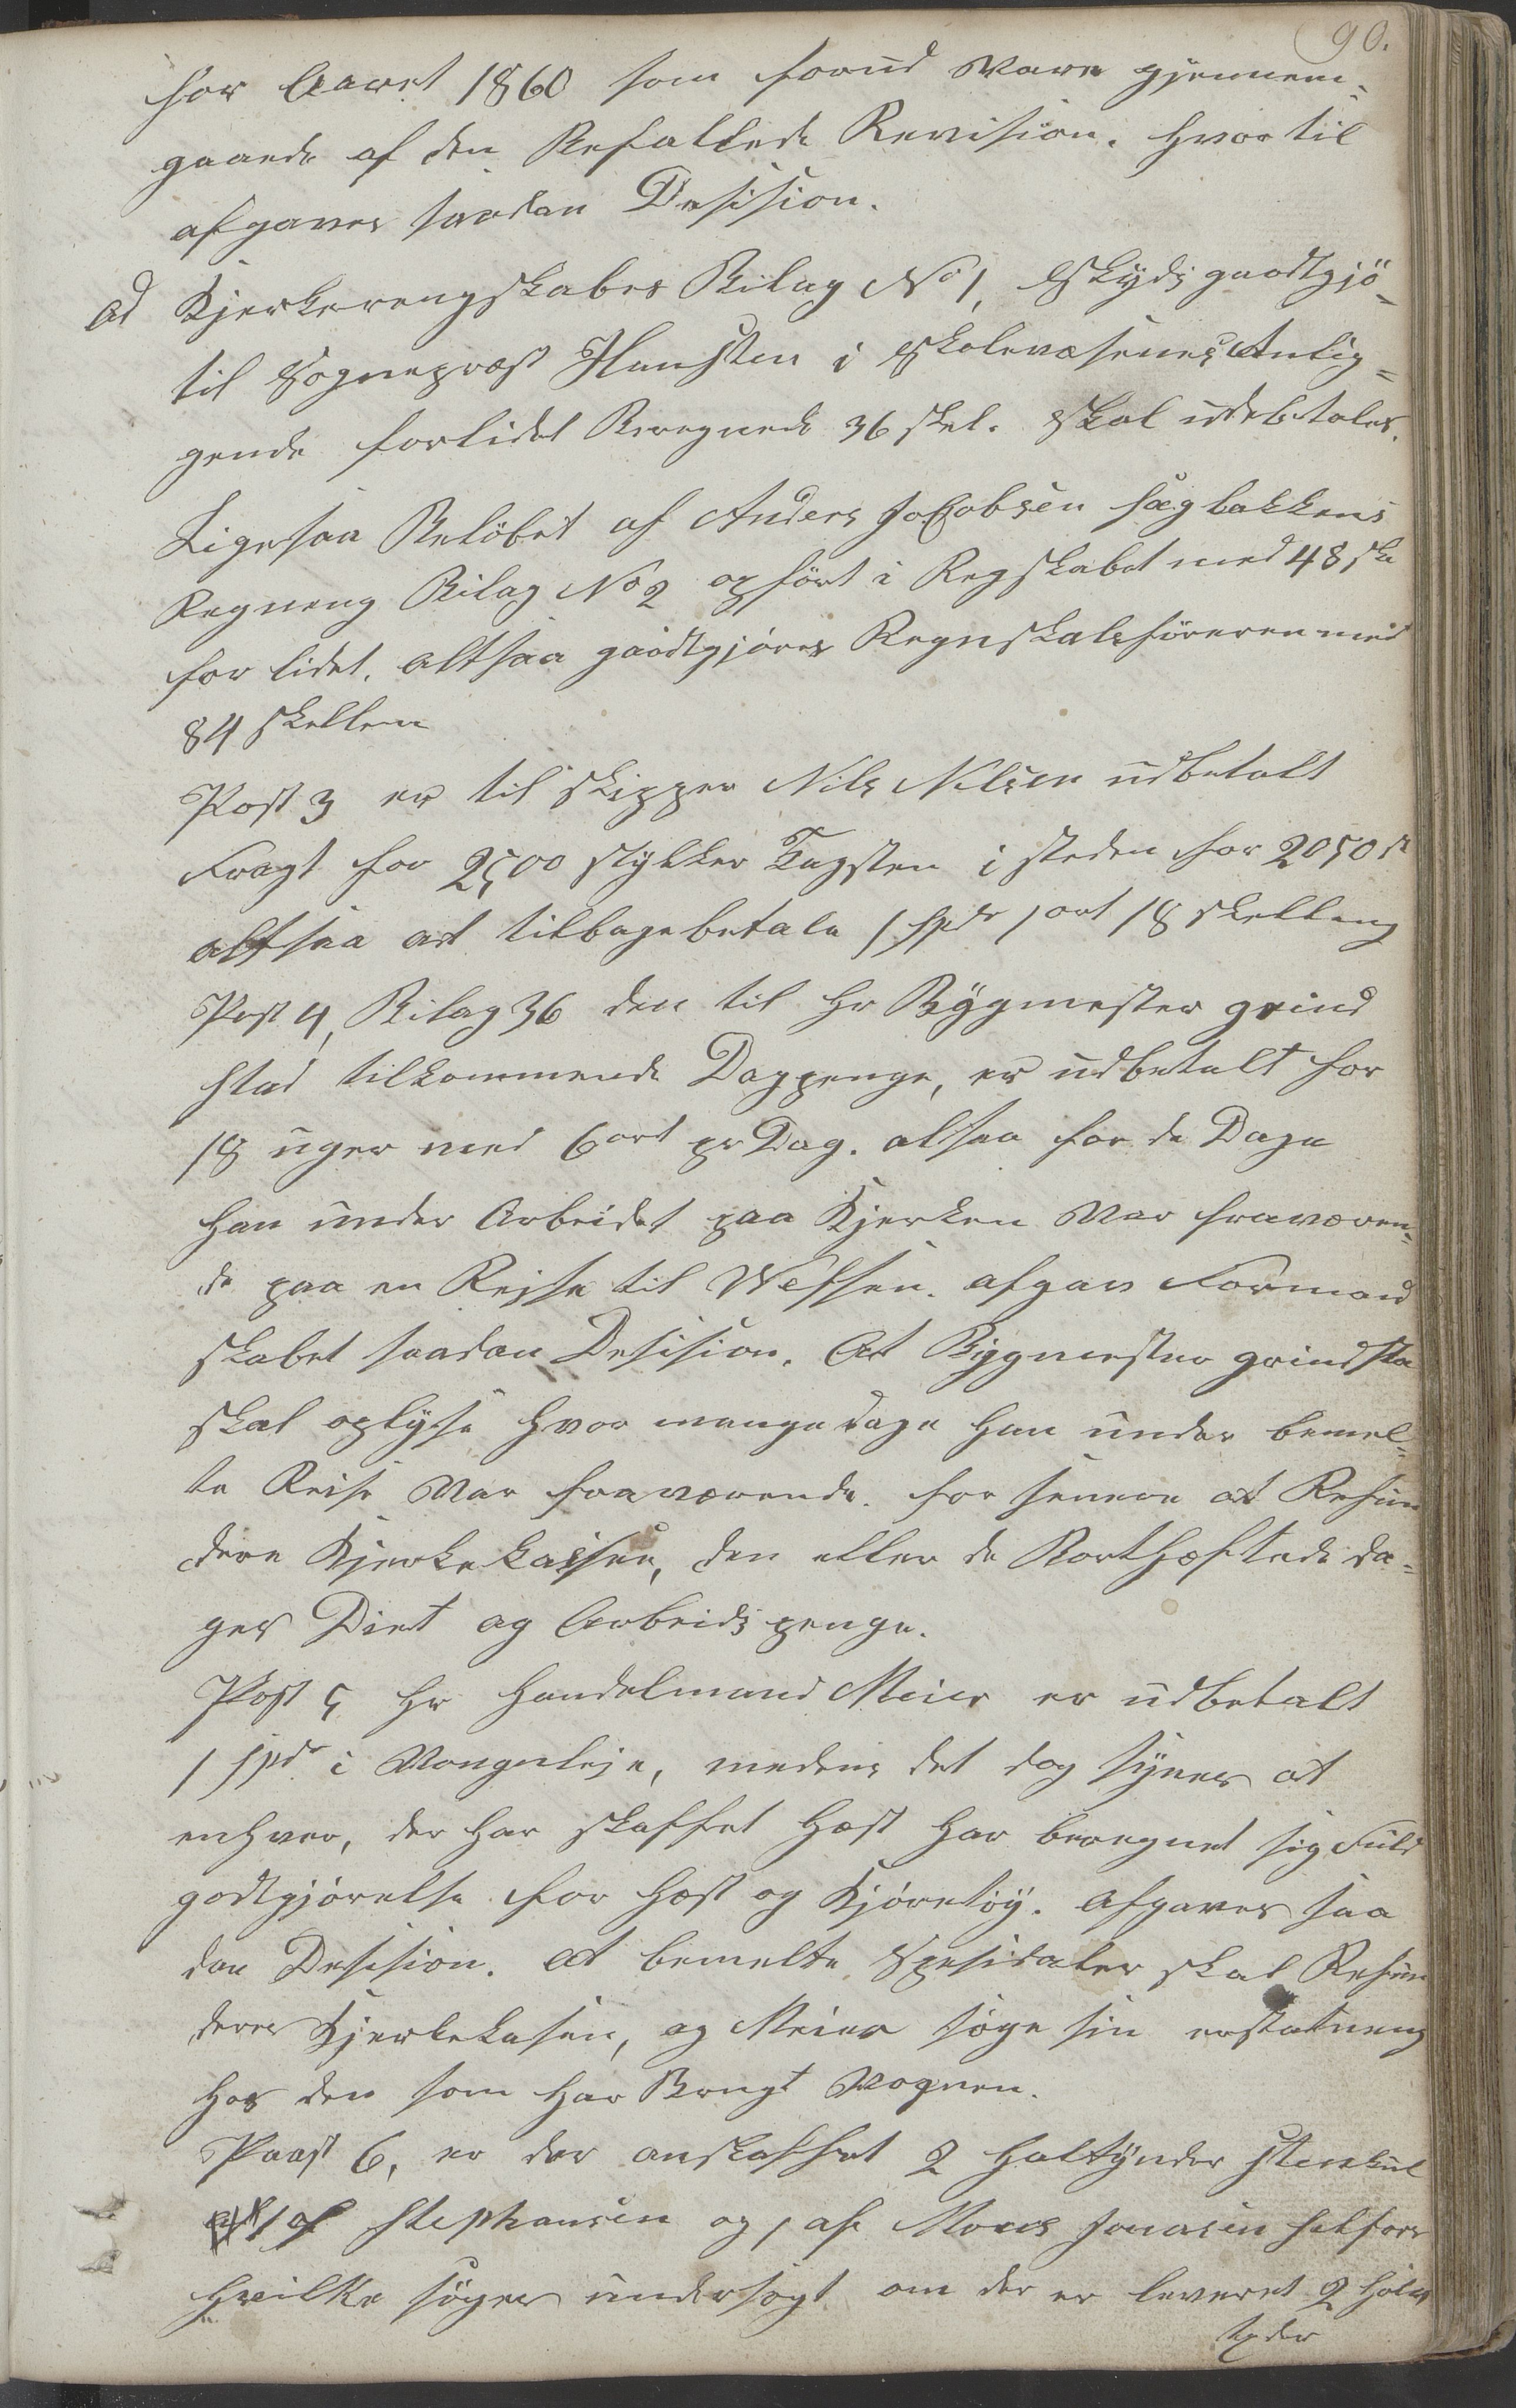 90.
for Aaret 1860 som forud Vare gjennem-
gaaede af den Befallede Revision. hvor til
afgaves saadan Desision.
Ad Kjerkerengskabes Bilag No 1, Skyds gaadtgjö-
til Sognepræst Hansten i Skolevæsenes Anlig-
gende forlidet Beregnede 36 skl. Skal udebetales.
Ligesaa Belöbet af Anders Jacobsen Hæglbakkens
Regneng Bilag No 2 opfört i Regskabet med 48 sk
for lidet, altsaa gaadtgjöres Regnskabsföreren med
84 skellen
Post 3 er til Skipper Nils Nilsen udbetalt
Fragt for 2500 stykker Tagsten i steden for 2050 st
altsaa at tilbagebetale 1 spdr 1 ort 18 skelleng
Post 4, Bilag 36 den til hr Bygmester grind
stad tilkommende Dagpenge, er udbetalt for
18 uger med 6 ort pr Dag. altsaa for de Dage
han under Arbeidet paa Kjerken Var fraværen-
de paa en Rejse til Vefsen. afgav Formand
skabet saadan Desision. At Bygmester grindsta
skal oplyse hvor mange dage han under bemel-
te Reise Var fraværende. for senere at Refun
dere Kjerkekassen, den eller de Borthæftede da-
ges Diet og Arbeids penge.
Post 5 hr Handelmand Meier er udbetalt
1 spdr i Vognleje, medens det dog synes at
enhver, der har skaffet Hæst har beregnet sig Fuld
godtgjörelse for Hæst og Kjöretöy. Afgaves saa
dan Desision. At bemelte Spesidaler skal Refun
deres Kjerkekasen, og Meier söge sin erstatneng
hos den som har Brugt Vognen.
Paast 6, er der anskaffet 2 Haltynder Stenkul
1 af Stephansen og 1 af Mons Jonasen Helfors
Hvilke söges undersögt om der er leveret 2 hele
Tönder